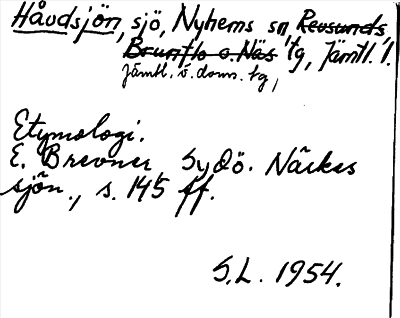 Håvdsjön, sjö, Nyhems sn, Revsunds,
Brunflo o. Näs tg, Jämtl. l.
Jämtl. v. doms. tg,
Etymologi.
E. Brevner SydÖ. Närkes
sjön., s. 145 ff.
S.L. 1954.